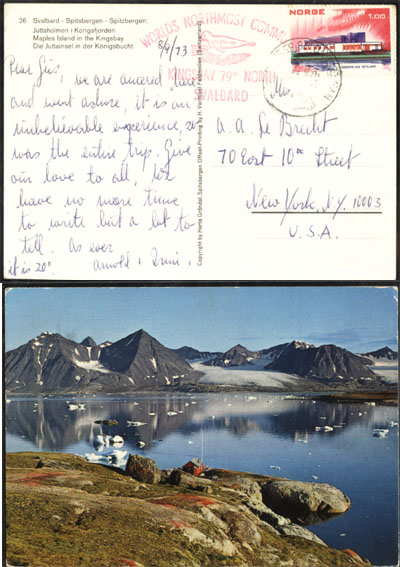 26 Svalbard - Spitsbergen - Spitzbergen:
Juttaholmen i Kongsfjorden
Maples Island in the Kingsbay
Die Juttainsel in der Königsbucht
8/9/73
Dear Sis, we are ancored here
and went ashore, it is an
unbelievable experience, as
was the entire trip. Give
our love to all, We
have no more time
to write but a lot to
tell. As ever
it is 20° Arnold
Copyright by Herta Grøndal, Spitsbergen. Offset-Printing by H.
WORLDS NORTHMOST COMM
KINGS BAY 79° NORTH
SVALBARD
NORGE 1.00
Ms.
A. A. Le Brecht
70 East 10th Street
New York, N.Y. 10003
U.S.A.